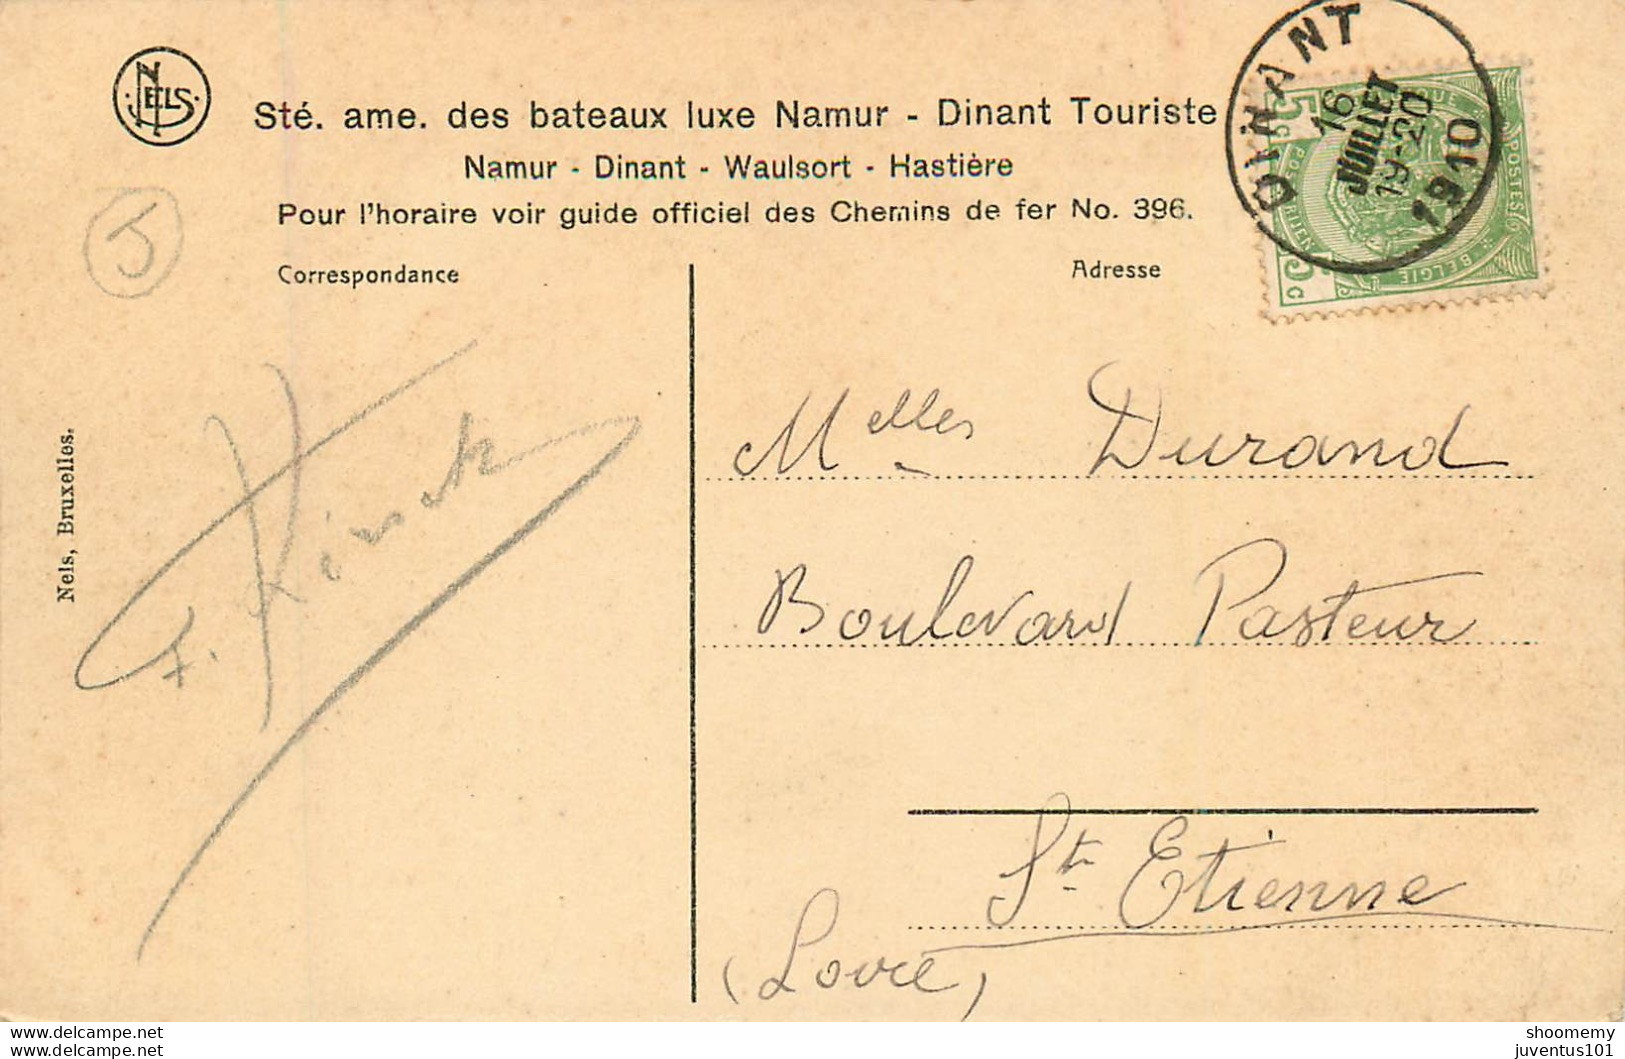 NELS
Sté. ame. des bateaux luxe Namur - Dinant Touriste
Namur - Dinant - Waulsort - Hastière
Pour l'horaire voir guide officiel des Chemins de fer No. 396.
Correspondance
Adresse
DINANT
16
JUILLET
19-20
1910
5 c
5 c
POSTES
BELGIE
J
Nels, Bruxelles.
Melles Durand
Boulevard Pasteur
St Etienne
(Loire)
www.delcampe.net
www.delcampe.net
shoomemy
juventus101